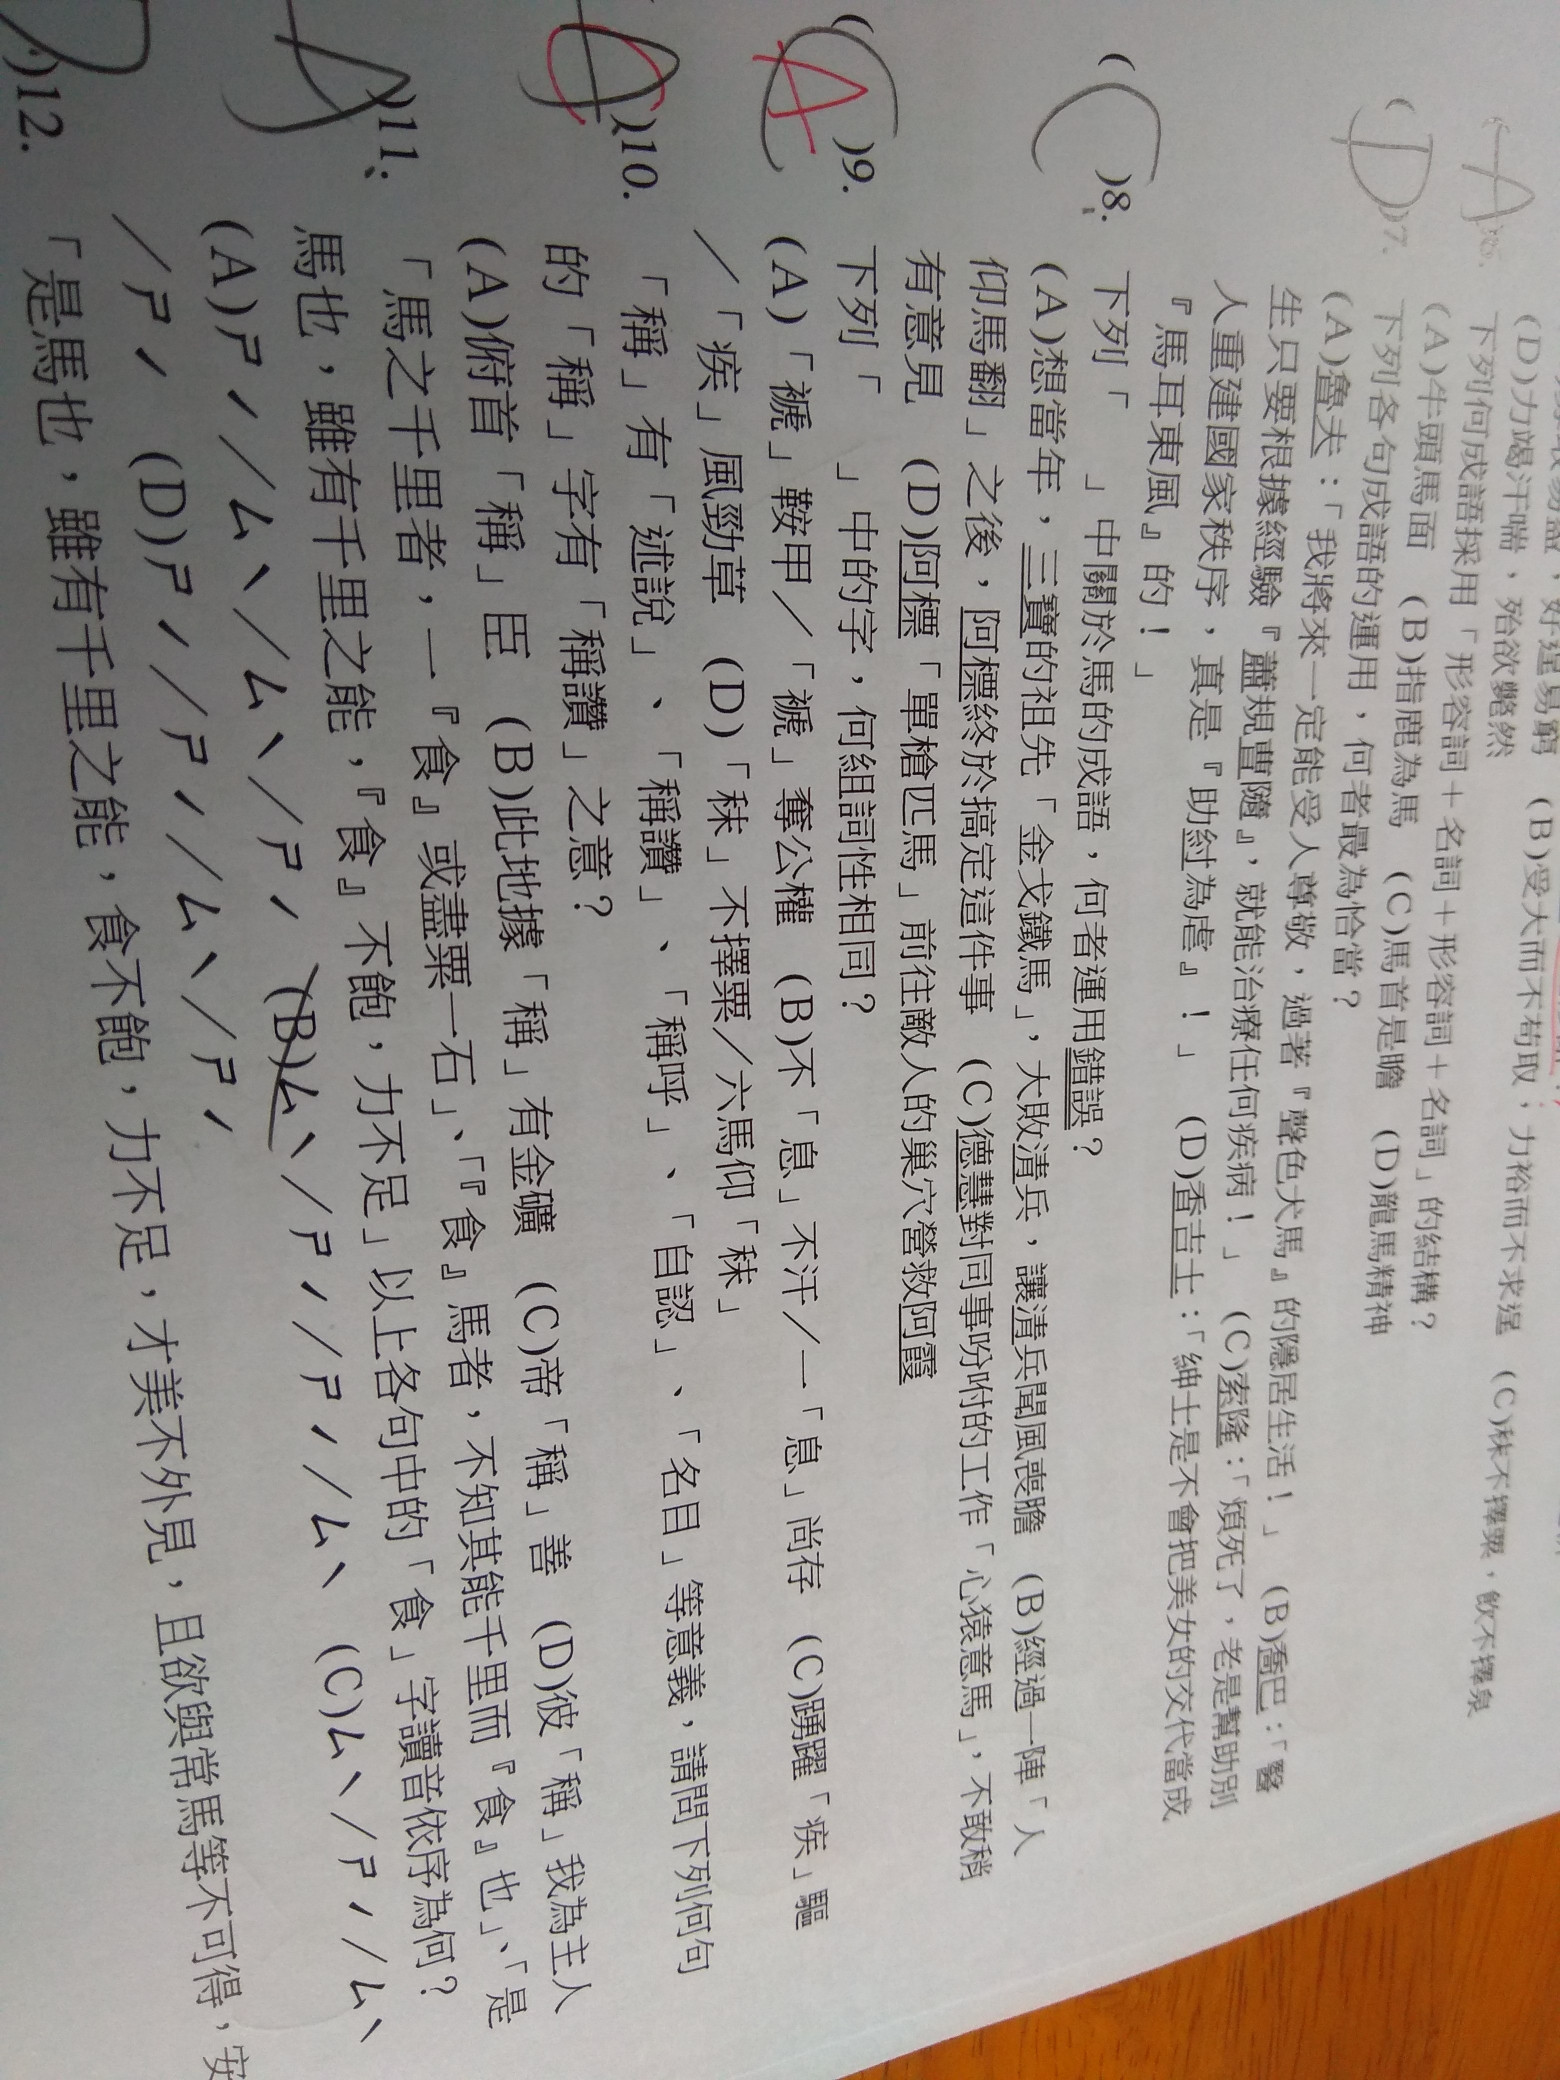 (D)力竭汗喘，殆欲斃然
(B)受大而不苟取；力裕而不求逞 (C)秣不擇粟，飲不擇泉
A
下列何成語採用「形容詞＋名詞＋形容詞＋名詞」的結構？
(A)牛頭馬面 (B)指鹿為馬 (C)馬首是瞻 (D)龍馬精神
(D)7.
下列各句成語的運用，何者最為恰當？
(A)魯夫：「我將來一定能受人尊敬，過著『聲色犬馬』的隱居生活！」 (B)喬巴：「醫
生只要根據經驗『蕭規曹隨』，就能治療任何疾病！」 (C)索隆：「煩死了，老是幫助別
人重建國家秩序，真是『助紂為虐』！」 (D)香吉士：「紳士是不會把美女的交代當成
『馬耳東風』的！」
(C)8.
下列「 」中關於馬的成語，何者運用錯誤？
(A)想當年，三寶的祖先「金戈鐵馬」，大敗清兵，讓清兵聞風喪膽 (B)經過一陣「人
仰馬翻」之後，阿標終於搞定這件事 (C)德慧對同事吩咐的工作「心猿意馬」，不敢稍
有意見 (D)阿標「單槍匹馬」前往敵人的巢穴營救阿霞
(C A)9.
下列「 」中的字，何組詞性相同？
(A)「褫」鞍甲／「褫」奪公權 (B)不「息」不汗／一「息」尚存 (C)踴躍「疾」驅
／「疾」風勁草 (D)「秣」不擇粟／六馬仰「秣」
(A C)10.
「稱」有「述說」、「稱讚」、「稱呼」、「自認」、「名目」等意義，請問下列何句
的「稱」字有「稱讚」之意？
(A)俯首「稱」臣 (B)此地據「稱」有金礦 (C)帝「稱」善 (D)彼「稱」我為主人
A)11.
「馬之千里者，一『食』或盡粟一石」、「『食』馬者，不知其能千里而『食』也」、「是
馬也，雖有千里之能，『食』不飽，力不足」以上各句中的「食」字讀音依序為何？
(A)ㄕˊ／ㄙˋ／ㄙˋ／ㄕˊ (B)ㄙˋ／ㄕˊ／ㄕˊ／ㄙˋ (C)ㄙˋ／ㄕˊ／ㄙˋ
／ㄕˊ (D)ㄕˊ／ㄕˊ／ㄙˋ／ㄕˊ
)12.
「是馬也，雖有千里之能，食不飽，力不足，才美不外見，且欲與常馬等不可得，安